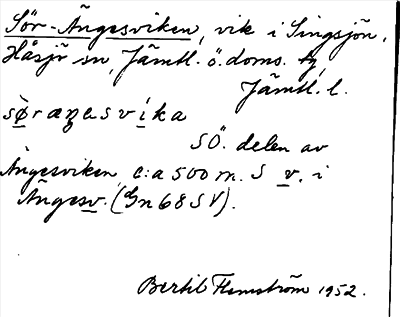 Sör-Ängesviken, vik i Singsjön,
Håsjö sn, Jämtl. ö. doms. tg,
Jämtl. l.
søræŋesvika
SÖ. delen av
Ängesviken, c:a 500 m. S v. i
Ängesv. (Gn 68 SV).
Bertil Flemström 1952.